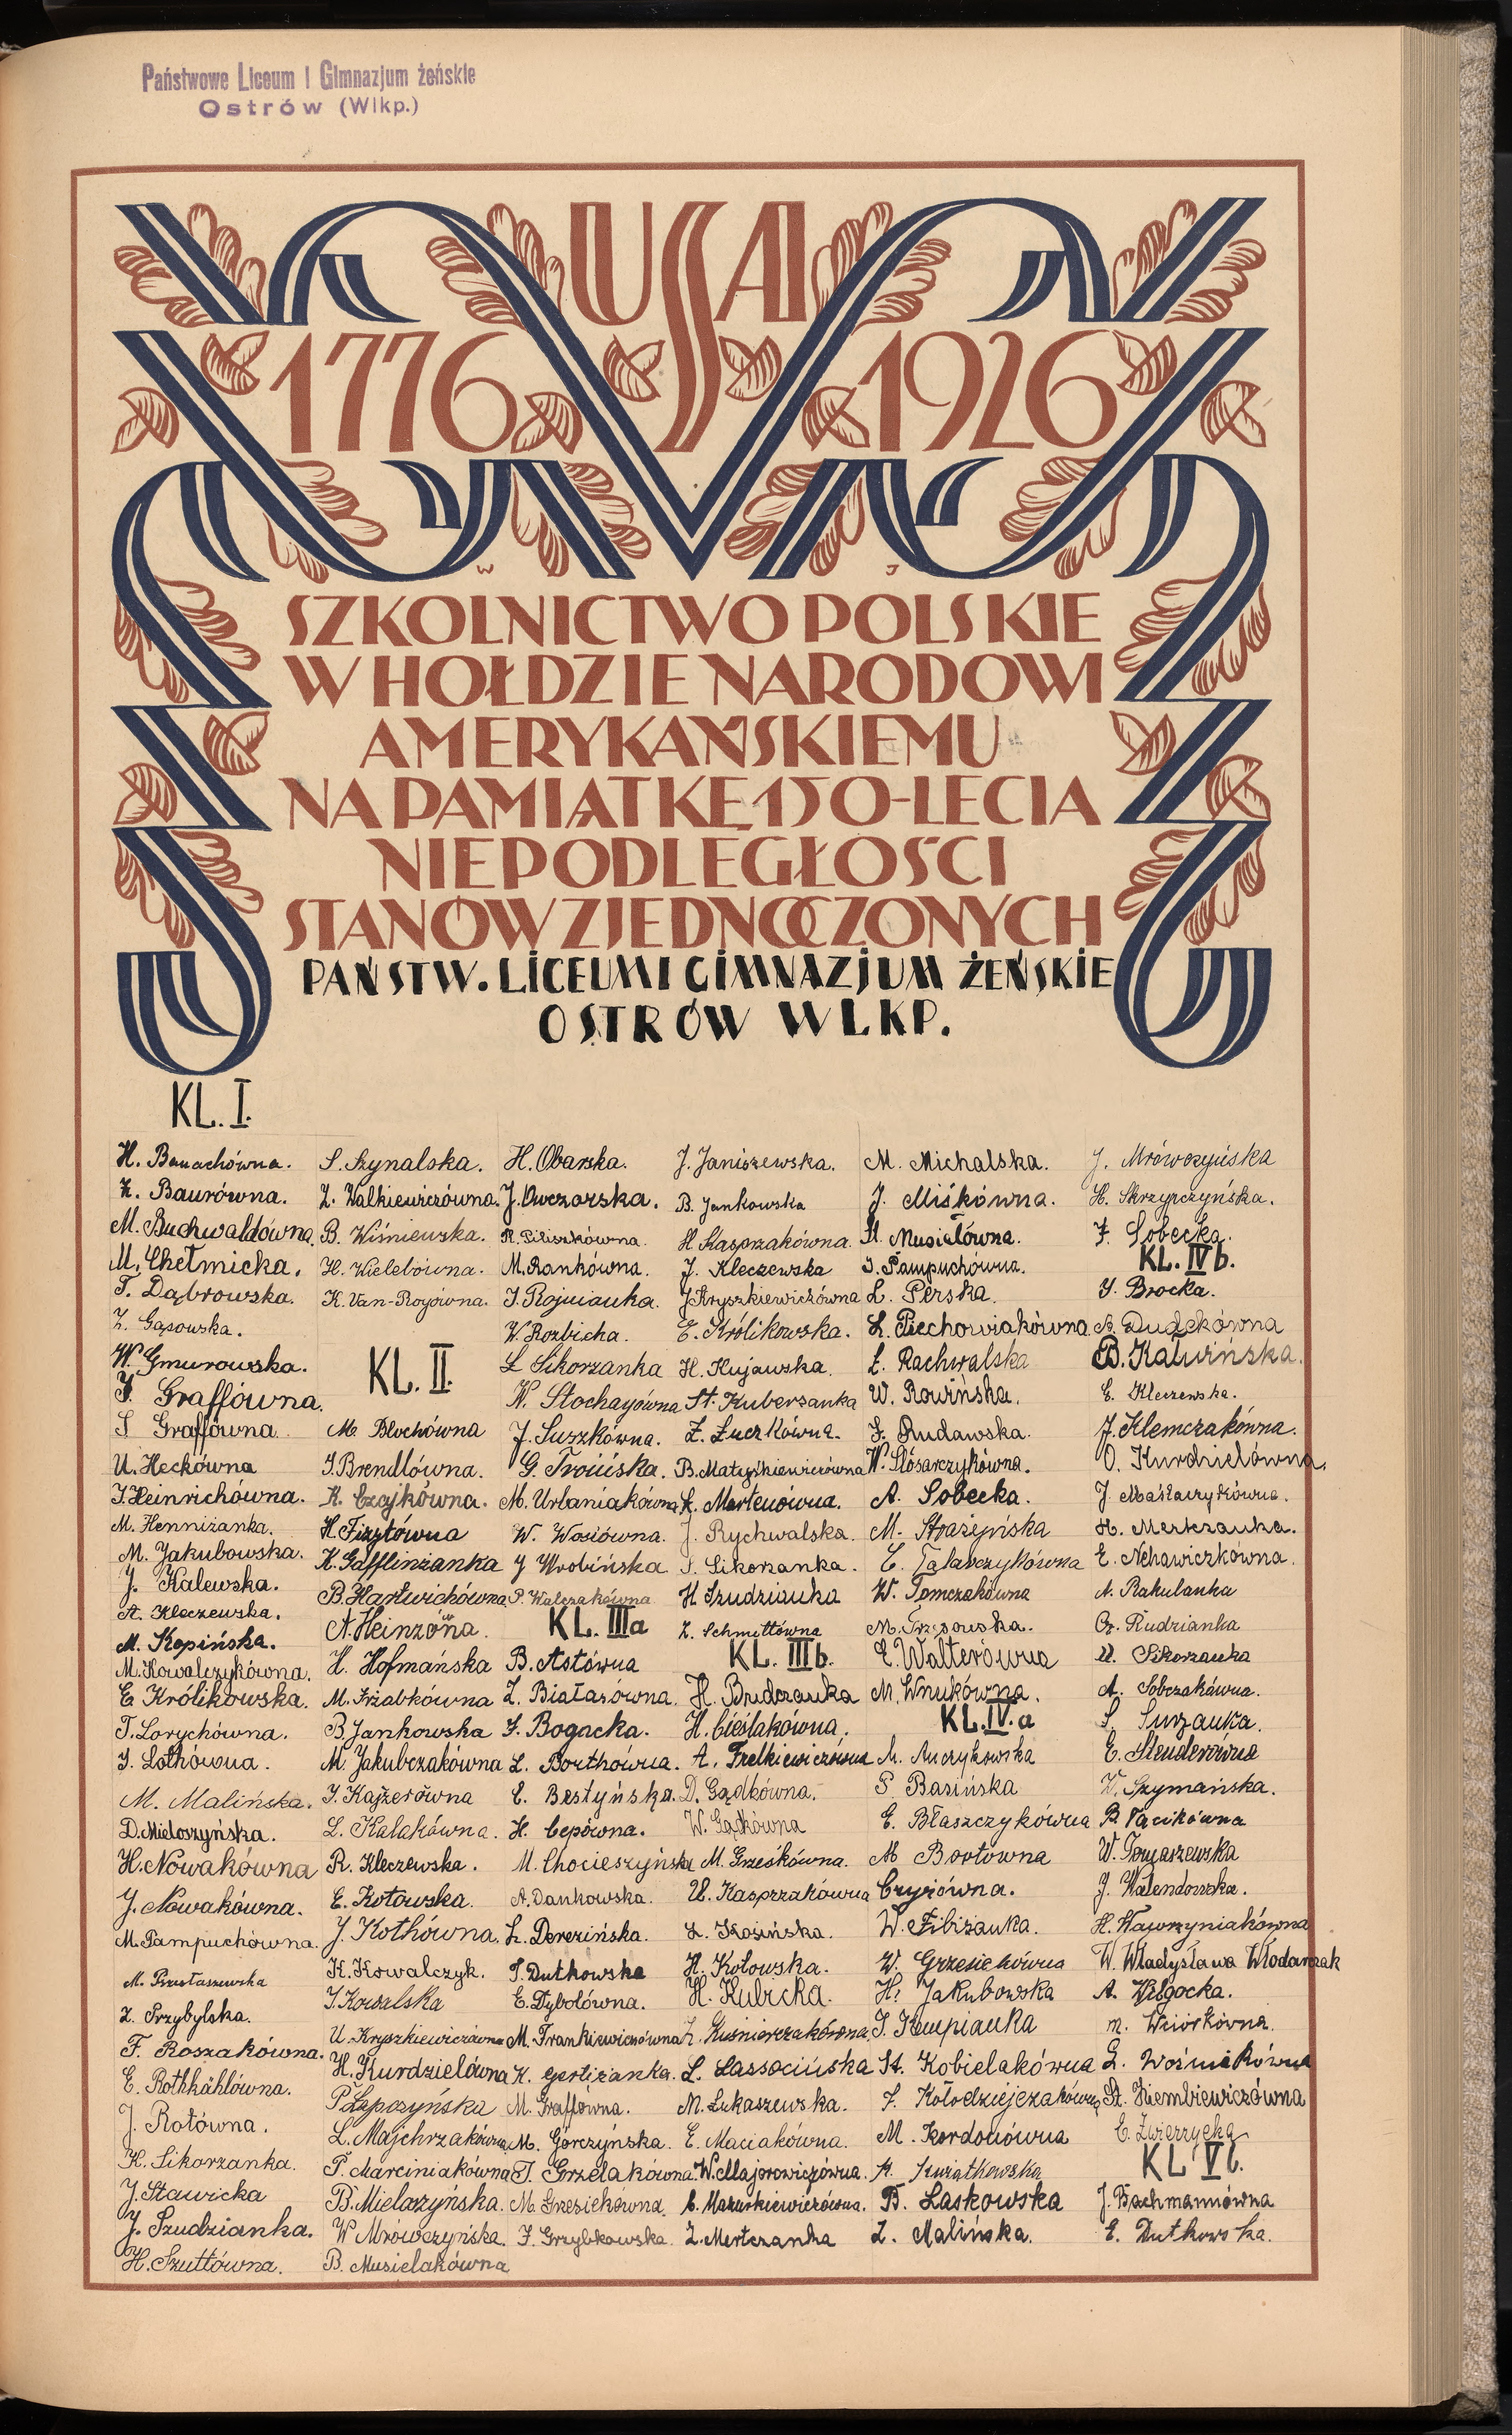 Państwowe Liceum i Gimnazjum żeńskie
Ostrów (Wlkp.)
USA
1776 1926
W J
SZKOLNICTWO POLSKIE
W HOŁDZIE NARODOWI
AMERYKAŃSKIEMU
NA PAMIĄTKĘ 150-LECIA
NIEPODLEGŁOŚCI
STANÓW ZJEDNOCZONYCH
PAŃSTW. LICEUM I GIMNAZJUM ŻEŃSKIE
OSTRÓW WLKP.
KL. I.
H. Banachówna.
K. Baurówna.
M. Buchwaldówna.
M. Chełmicka.
T. Dąbrowska.
Z. Gąsowska.
W. Gmurowska.
I. Graffówna.
S Graffówna
U. Heckówna
I. Heinrichówna.
M. Henniżanka.
M. Jakubowska.
J. Kalewska.
A. Kleczewska.
M. Kopińska.
M. Kowalczykówna.
E. Królikowska.
T. Lorychówna.
I. Lothówna.
M. Malińska.
D. Mieloszyńska.
H. Nowakówna
J. Nowakówna.
M. Pampuchówna.
M. Przetaszewska
Z. Przybylska.
F. Roszakówna.
E. Rothkählówna.
J. Rotówna.
K. Sikorzanka.
J. Stawicka
J. Szudzianka.
H. Szuttówna.
S. Szynalska.
Z. Walkiewiczówna.
B. Wiśniewska.
H. Wielebówna.
K. Van-Royówna.
KL. II.
M. Blochówna
I. Brendlówna.
K. Czajkówna.
H. Fizytówna
K. Gafflinżanka
B. Hartwichówna
A. Heinzówna.
H. Hofmańska
M. Irżabkówna
B. Jankowska
M. Jakubczakówna
I. Kajzerówna
L. Kalakówna.
R. Kleczewska.
E. Kotowska.
J. Kothówna.
K. Kowalczyk.
I. Kowalska
U. Kryszkiewiczówna
H. Kurdzielówna
P. Łapczyńska
L. Majchrzakówna
P. Marciniakówna
B. Mielarzyńska.
W Mrówczyńska.
B. Musielakówna
H. Obarska.
J. Owczarska.
R. Piliszkówna.
M. Rankówna.
I. Rojnianka.
W. Rozbicka.
L Sikorzanka
K. Stochayówna
J. Suszkówna.
G. Troińska.
M. Urbaniakówna
W. Wosiówna.
J Wrobińska
P. Walczakówna
KL. IIIa
B. Astówna
Z. Białasówna.
I. Bogacka.
L. Borthówna.
E. Bestyńska.
H. Cepówna.
M. Chocieszyńska
A. Dankowska.
Z. Derezińska.
I. Dutkowska
E. Dybolówna.
M. Frankiewiczówna
K. Gerliżanka.
M. Graffówna.
M. Gorczyńska.
T. Grzelakówna.
M. Grzesiekówna.
I. Grzybkowska.
J. Janiszewska.
B. Jankowska
H Kasprzakówna.
J. Kleczewska
J. Kryszkiewiczówna
E. Królikowska.
H. Kujawska.
St. Kubersanka
Z. Łuczkówna.
B. Matyśkiewiczówna
K. Mertenówna.
J. Rychwalska.
S. Sikorzanka.
H Szudzianka
Z. Schmittówna
KL. IIIb.
H. Brudzanka
H. Cieślakówna.
A. Frelkiewiczówna
D. Gądkówna.
W. Gądkówna
M. Grześkówna.
U. Kasprzakówna
Z. Kosińska.
H. Kotowska.
H. Kubicka.
Z. Kuśnierzakówna
L. Lassocińska
M. Łukaszewska.
E. Maciakówna.
W. Majorowiczówna.
C. Mazurkiewiczówna.
Z. Mertczanka
M. Michalska.
J. Miśkówna.
St. Musiałówna.
I. Pampuchówna.
L. Perska.
L. Piechowiakówna.
L. Rachwalska
W. Rowińska.
I. Rudawska.
W. Ślósarczykówna.
A. Sobecka.
M. Strażyńska
C. Talarczykówna
W. Tomczakówna
M. Trzęsowska.
E. Walterówna
M. Wnukówna.
KL. IV. a
M. Anczykowska
S Basińska
E. Błaszczykówna
M Bortówna
Cryżówna.
W. Fibiżanka.
W. Grzesiekówna
H. Jakubowska
I. Kempianka
St. Kobielakówna
J. Kołodziejczakówna
M. Kordonówna
A. Kwiatkowska
B. Laskowska
Z. Malińska.
J. Mrówczyńska
H. Skrzypczyńska.
J. Sobecka.
KL. IV b.
I. Brocka.
A. Dudekówna
B. Kalwińska.
E. Kleczewska.
J. Klemczakówna.
O. Kurdzielówna.
J. Małaczykówna.
H. Mertczanka.
E. Nehawiczkówna.
A. Rakulanka
Cz. Rudzianka
U. Sikorzanka
A. Sobczakówna.
S. Surzanka.
E. Steuderówna
W. Szymańska.
R. Tacikówna
W. Tomaszewska
J. Walendowska.
H. Wawrzyniakówna
W. Władysława Włodarczak
A. Wilgocka.
M. Wciórkówna.
L. Woźniakówna
St. Ziembiewiczówna
C. Zwierzycka
KL V b.
J. Bachmannówna
E. Dutkowska.